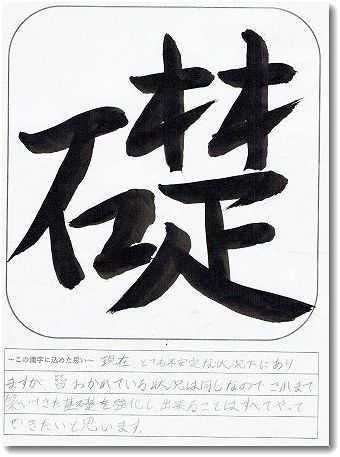 礎
～この漢字に込めた思い～ 現在、とても不安定な状況下にあり
ますが 皆おかれている状況は同じなので これまで
築いてきた基礎を強化し出来ることはすべてやって
いきたいと思います。